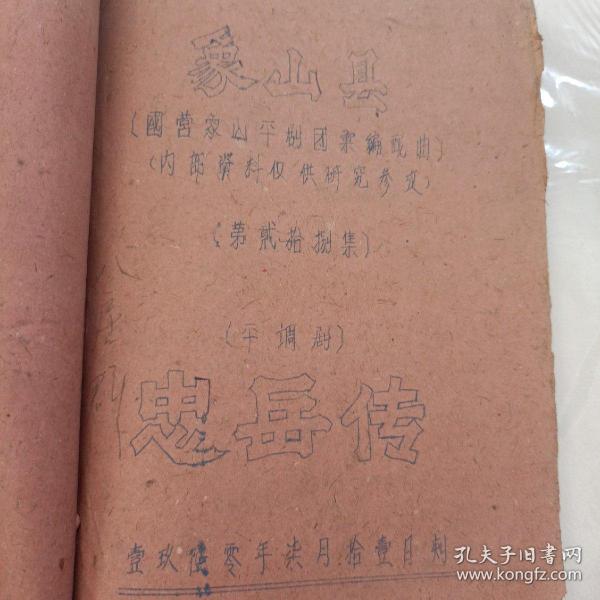 象山县
(國营象山平剧团彙编戏曲)
(内部资料仅供研究参攷)
(第贰拾捌集)
(平調剧)
忠岳传
壹玖陆零年柒月拾壹日刻
孔夫子旧书网
www.kongfz.com